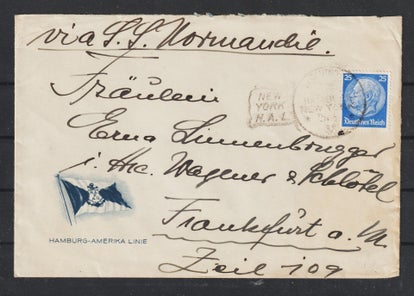 via S.S. Normandie.
25 25
Deutsches Reich
NEW
YORK
H.A.L.
NEW YORK
Fräulein
Erna Linnenbrugger
i. Hs. Wagener & Schlötel
Frankfurt a. M.
Zeil 109
HAMBURG-AMERIKA LINIE